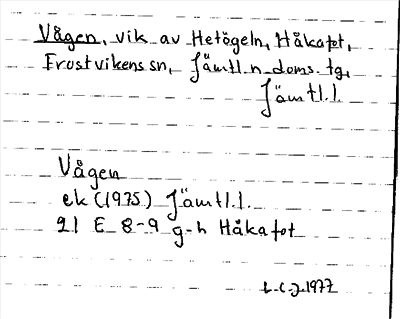 Vågen, vik av Hetögeln, Håkafot,
Frostvikens sn, Jämtl. n. doms. tg,
Jämtl. l.
Vågen
ek (1975) Jämtl. l.
21 E 8-9 g-h Håkafot
1977